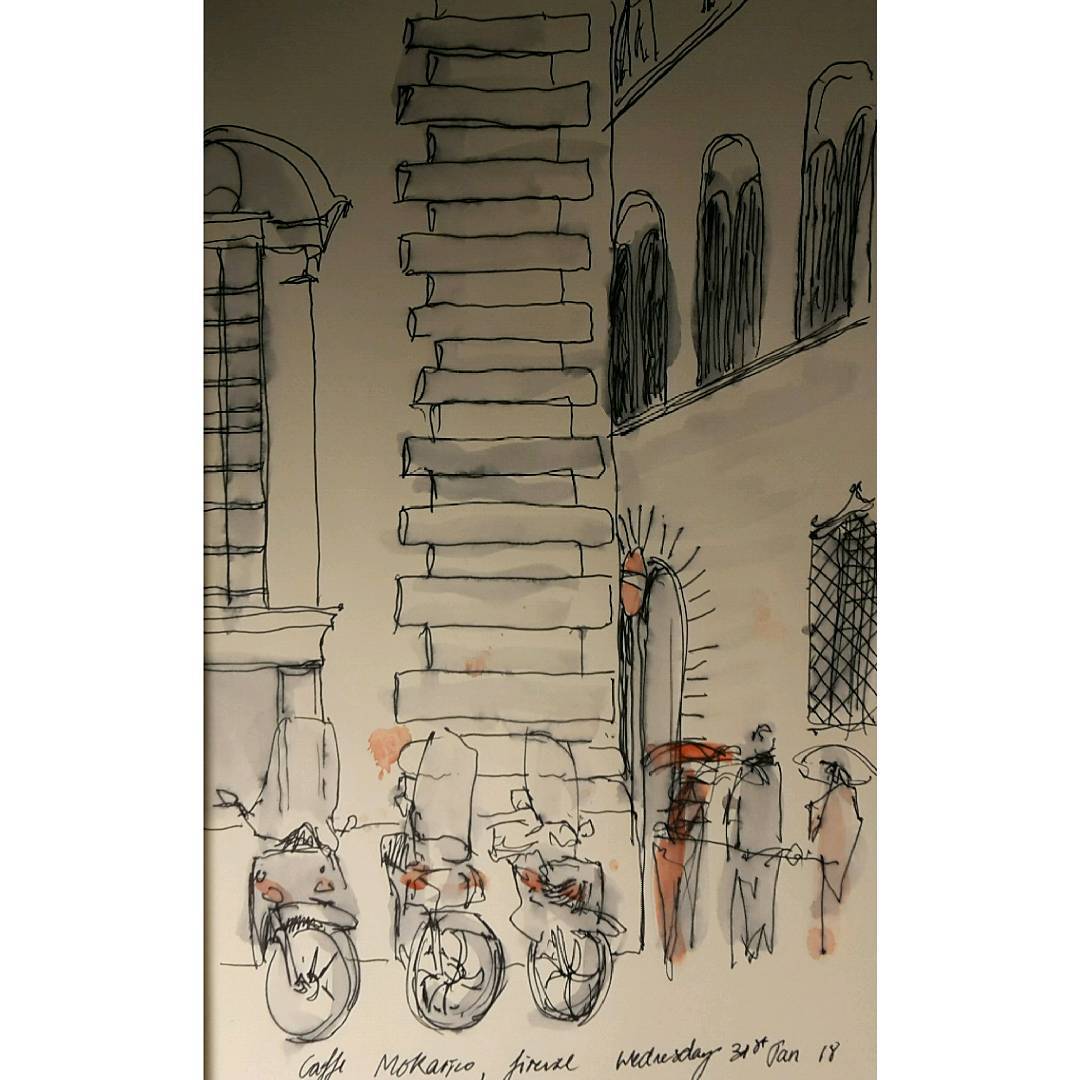 Caffe Mokarico, firenze Wednesday 31st Jan 18